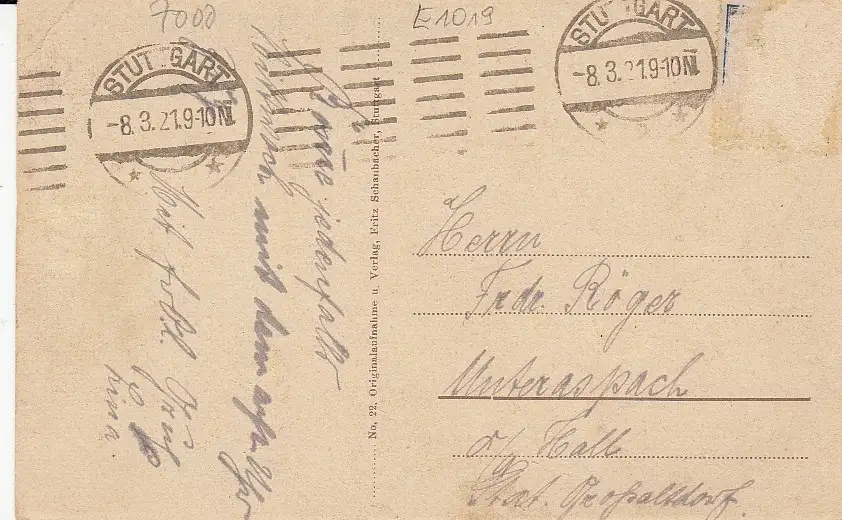 7000
E1019
STUTTGART
-8.3.21.9-10N.
STUTTGART
-8.3.21.9-10N.
jedenfalls
Mittwoch mit dem
Uhr
Mit frdl. Gruß
No. 22, Originalaufnahme u. Verlag, Fritz Schaubacher, Stuttgart
Herrn
Frdr. Röger
Unteraspach
b/ Hall
Stat. Großaltdorf